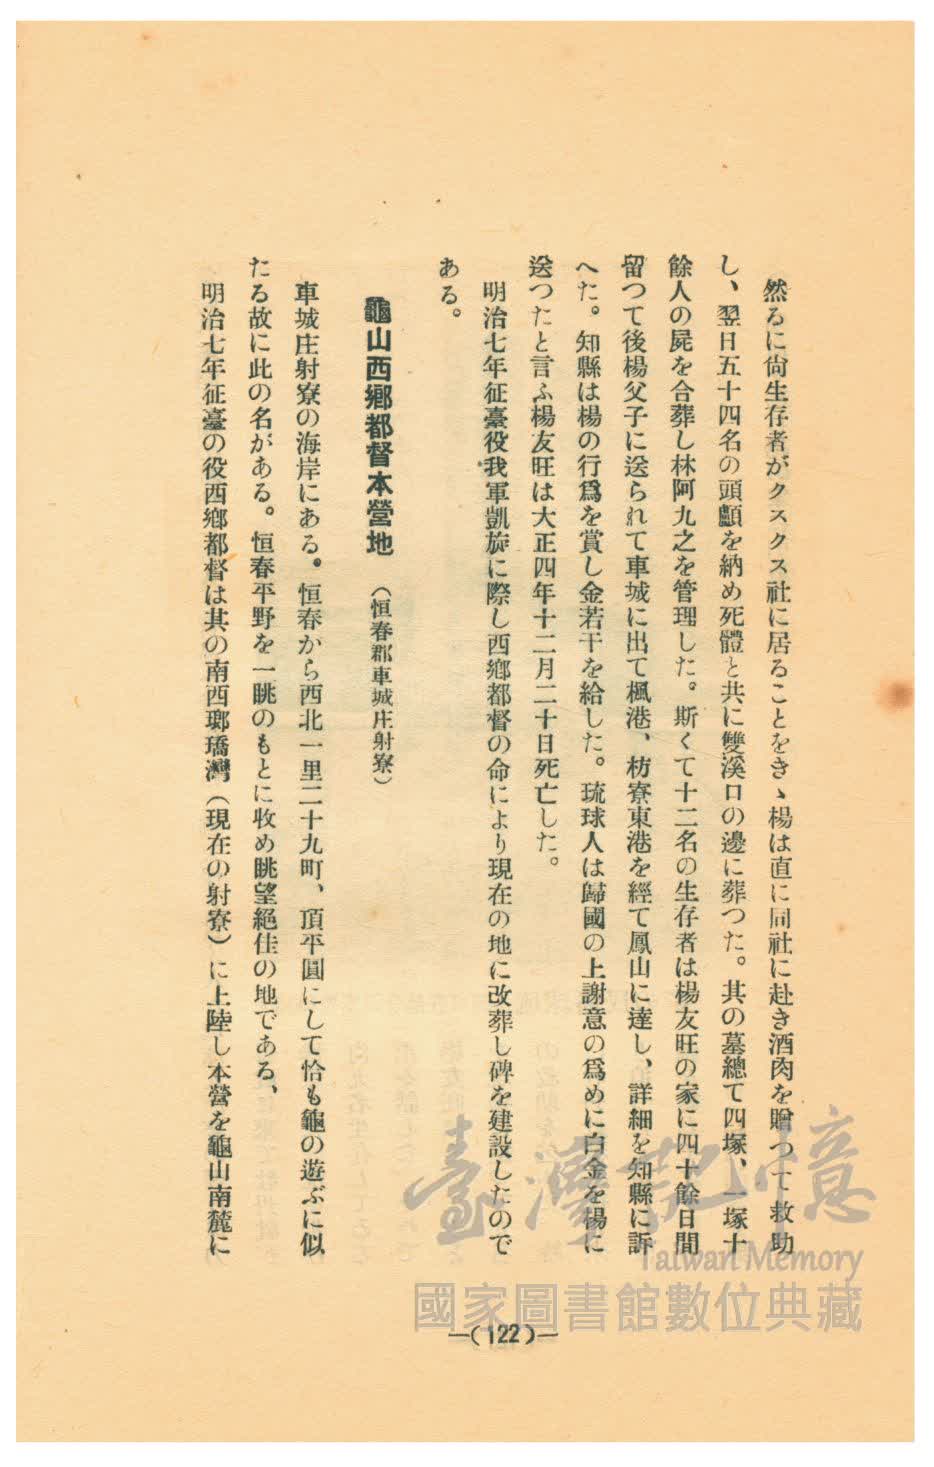 然るに尙生存者がクスクス社に居ることをきゝ楊は直に同社に赴き酒肉を贈つて救助
し、翌日五十四名の頭顱を納め死體と共に雙溪口の邊に葬つた。其の墓總て四塚、一塚十
餘人の屍を合葬し林阿九之を管理した。斯くて十二名の生存者は楊友旺の家に四十餘日間
留つて後楊父子に送られて車城に出て楓港、枋寮東港を經て鳳山に達し、詳細を知縣に訴
へた。知縣は楊の行爲を賞し金若干を給した。琉球人は歸國の上謝意の爲めに白金を楊に
送つたと言ふ楊友旺は大正四年十二月二十日死亡した。
明治七年征臺役我軍凱旋に際し西鄕都督の命により現在の地に改葬し碑を建設したので
ある。
龜山西鄕都督本營地 (恒春郡車城庄射寮)
車城庄射寮の海岸にある。恒春から西北一里二十九町、頂平圓にして恰も龜の遊ぶに似
たる故に此の名がある。恒春平野を一眺のもとに收め眺望絕佳の地である、
明治七年征臺の役西鄕都督は其の南西瑯璚灣(現在の射寮)に上陸し本營を龜山南麓に
—(122)—
臺灣記憶
Taiwan Memory
國家圖書館數位典藏